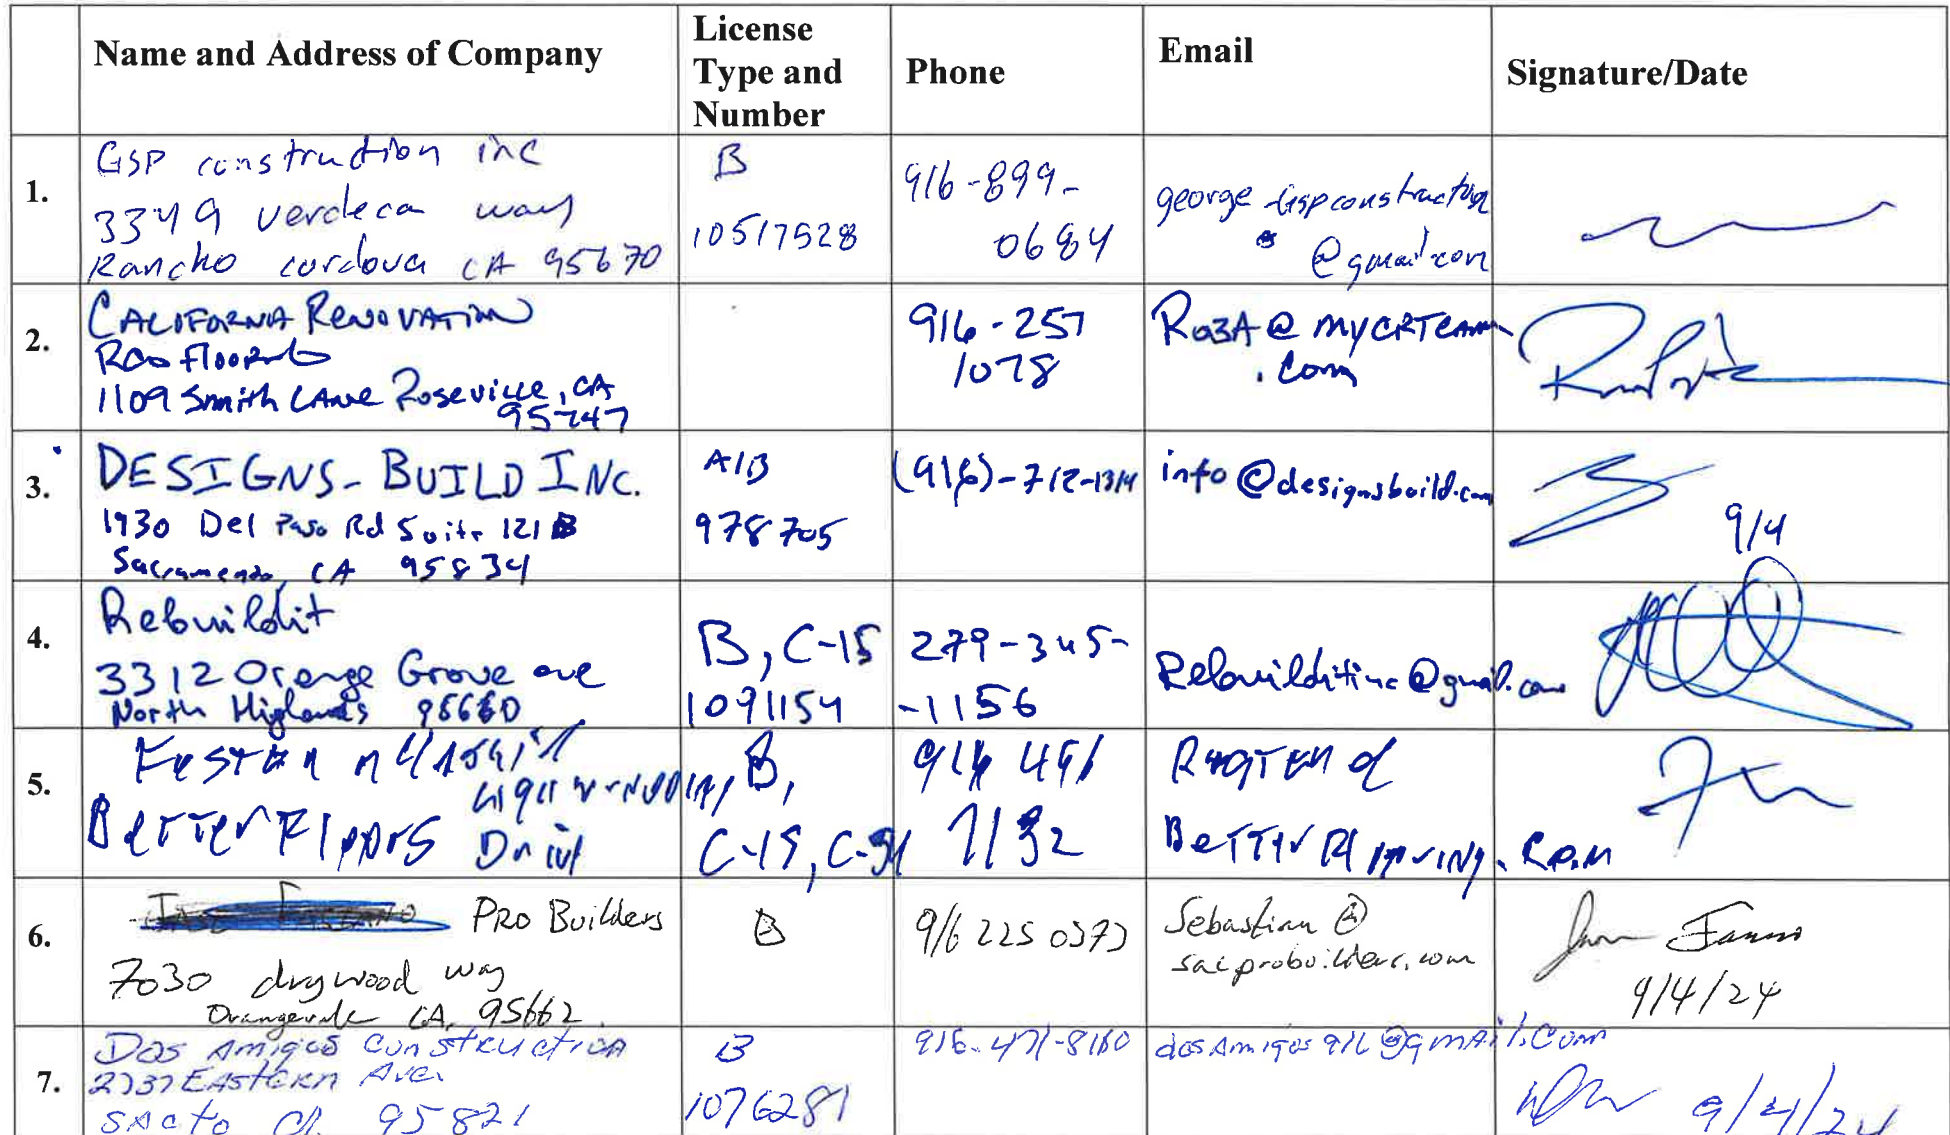 Name and Address of Company
License Type and Number
Phone
Email
Signature/Date
1.
GSP construction inc
3349 verdeca way
Rancho cordova CA 95670
B
10517528
916-899-
0684
george
@gmail.com
2.
CALIFORNIA RENOVATION
1109 Smith LANE Roseville, CA
95747
916-257
1078
@ MYCRTEAM
.com
3.
DESIGNS-BUILD INC.
1930 Del Paso Rd Suite 121 B
Sacramento, CA 95834
A/B
978705
(916)-712-1314
info@designsbuild.com
9/4
4.
Rebuildit
3312 Orange Grove ave
North Highlands 95660
B, C-15
1091154
279-345-
-1156
Rebuilditinc@gmail.com
5.
B,
C-15,
916
6.
PRO Builders
7030 drywood way
Orangevale CA, 95662
B
916 225 0373
Sebastian @
sacprobuilders.com
9/4/24
7.
Dos Amigos Construction
2737 EASTERN Ave.
SACTO CA. 95821
B
1076281
916-471-8160
dosAmigos916@gmail.com
9/4/24